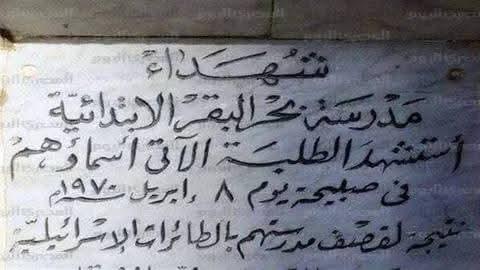 شهداء
مدرسة بحر البقر الابتدائية
أستشهد الطلبة الآتى أسماؤهم
فى صبيحة يوم ٨ إبريل سنة ١٩٧٠
نتيجة لقصف مدرستهم بالطائرات الإسرائيلية